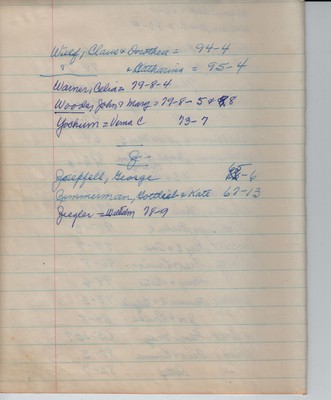 Wulf, Claus & Dorothea = 94-4
" & Katharina = 95-4
Warner, Celia = 79-8-4
Woods, John & Mary = 79-8-5 & 8
Yochum = Verna C 73-7
Z
Zaepfell, George -6
Zimmerman, Gottlieb & Kate 67-13
Ziegler = William 78-9